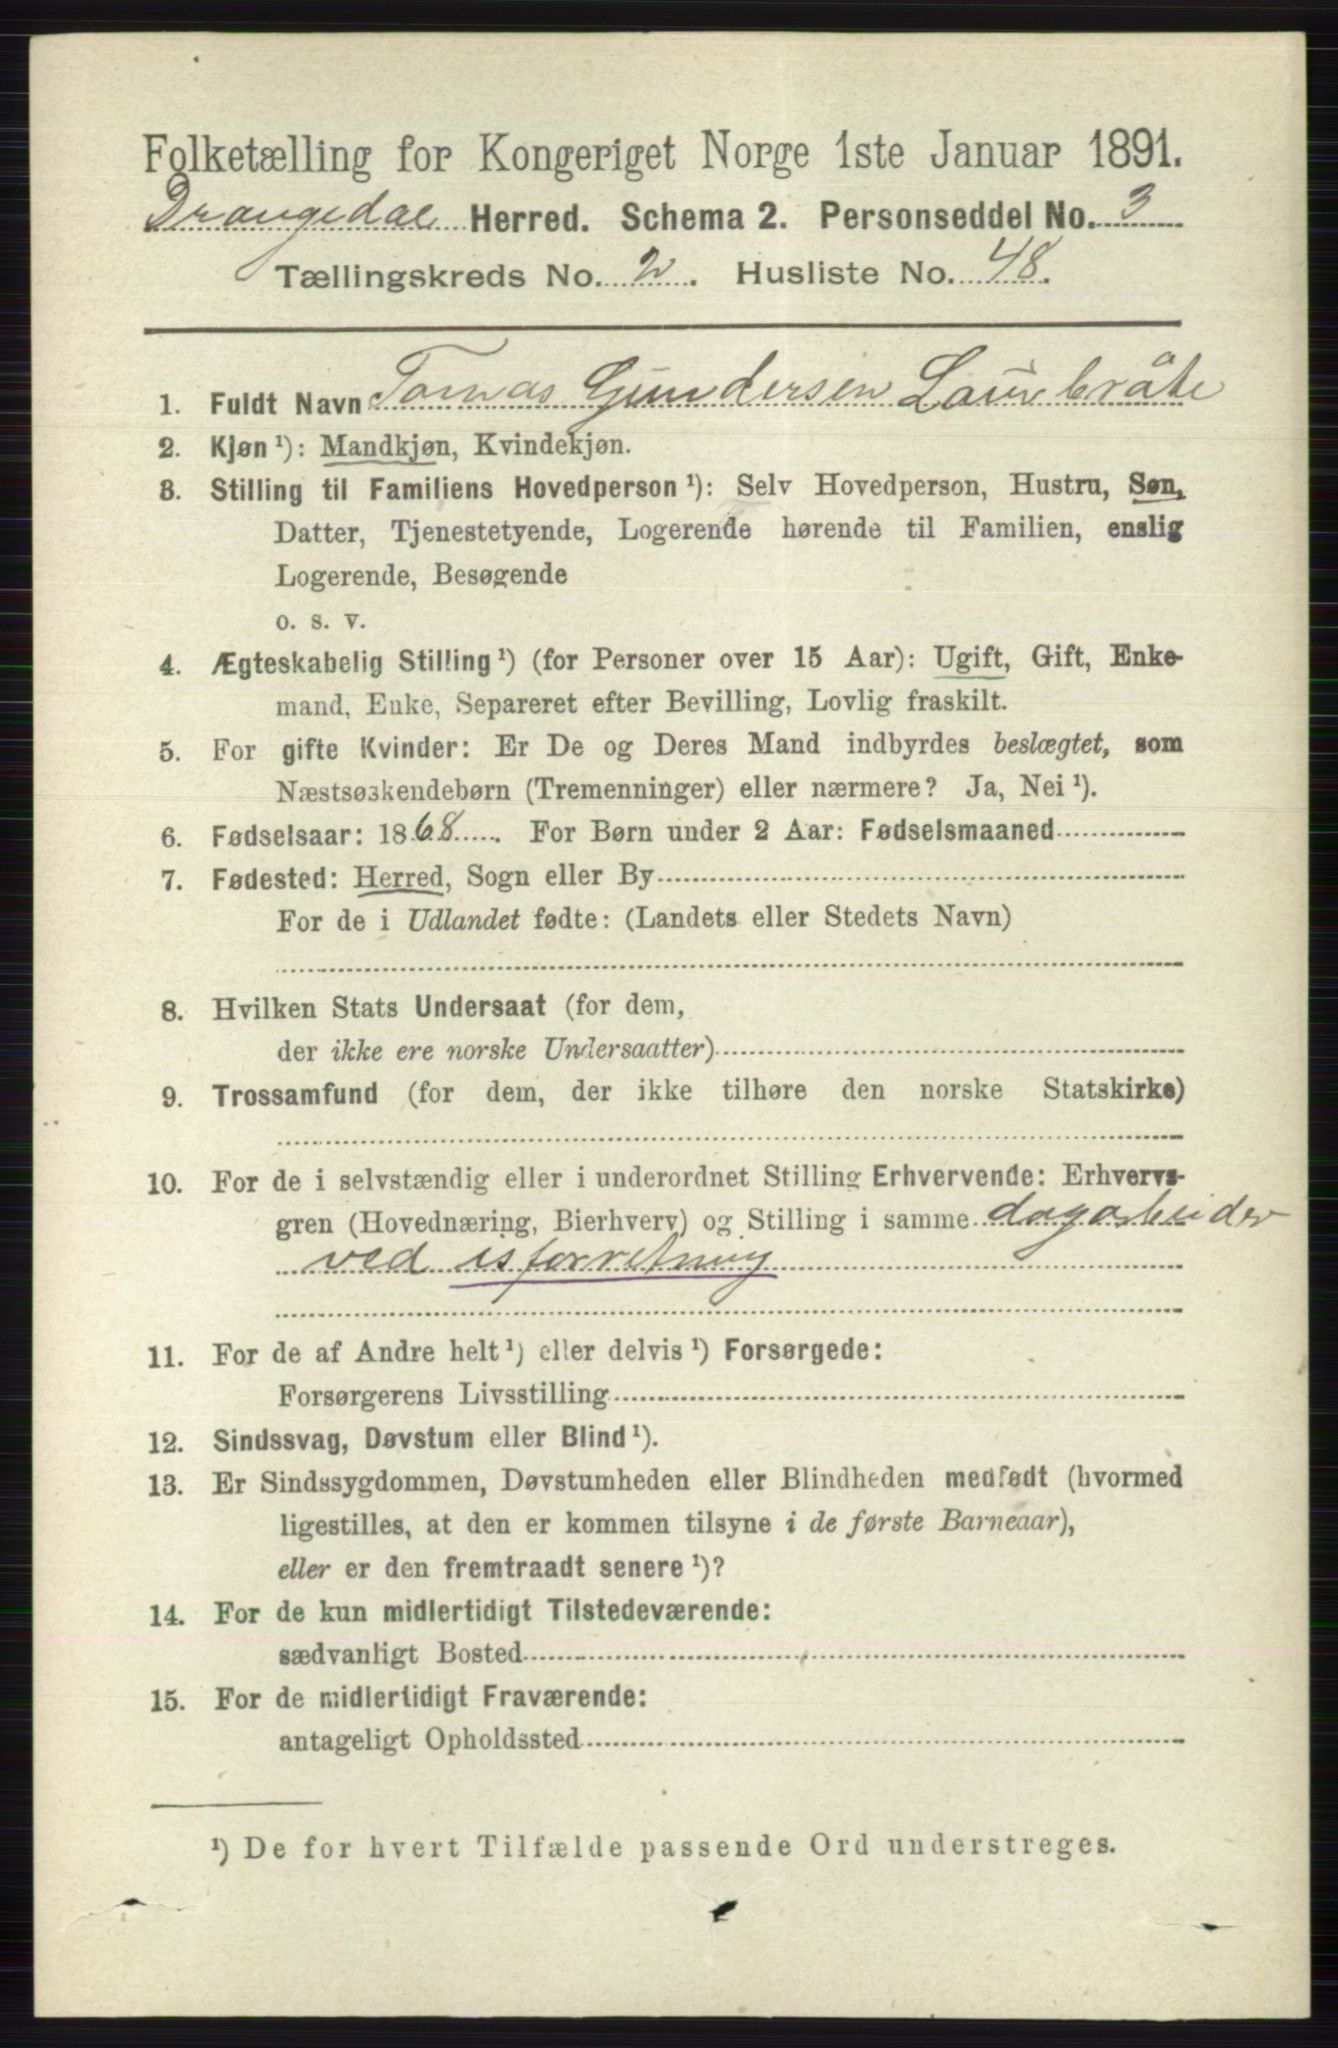 Folketælling for Kongeriget Norge 1ste Januar 1891.
Drangedal Herred. Schema 2. Personseddel No. 3
Tællingskreds No. 2. Husliste No. 48.
1. Fuldt Navn Tomas Gundersen Lauvbråte
2. Kjøn ¹): Mandkjøn, Kvindekjøn.
3. Stilling til Familiens Hovedperson ¹): Selv Hovedperson, Hustru, Søn,
Datter, Tjenestetyende, Logerende hørende til Familien, enslig
Logerende, Besøgende
o. s. v.
4. Ægteskabelig Stilling ¹) (for Personer over 15 Aar): Ugift, Gift, Enke-
mand, Enke, Separeret efter Bevilling, Lovlig fraskilt.
5. For gifte Kvinder: Er De og Deres Mand indbyrdes beslægtet, som
Næstsøskendebørn (Tremenninger) eller nærmere? Ja, Nei ¹).
6. Fødselsaar: 1868. For Børn under 2 Aar: Fødselsmaaned
7. Fødested: Herred, Sogn eller By
For de i Udlandet fødte: (Landets eller Stedets Navn)
8. Hvilken Stats Undersaat (for dem,
der ikke ere norske Undersaatter)
9. Trossamfund (for dem, der ikke tilhøre den norske Statskirke)
10. For de i selvstændig eller i underordnet Stilling Erhvervende: Erhvervs-
gren (Hovednæring, Bierhverv) og Stilling i samme dagarbeider
ved isforretning
11. For de af Andre helt ¹) eller delvis ¹) Forsørgede:
Forsørgerens Livsstilling
12. Sindssvag, Døvstum eller Blind ¹).
13. Er Sindssygdommen, Døvstumheden eller Blindheden medfødt (hvormed
ligestilles, at den er kommen tilsyne i de første Barneaar),
eller er den fremtraadt senere ¹)?
14. For de kun midlertidigt Tilstedeværende:
sædvanligt Bosted
15. For de midlertidigt Fraværende:
antageligt Opholdssted
¹) De for hvert Tilfælde passende Ord understreges.